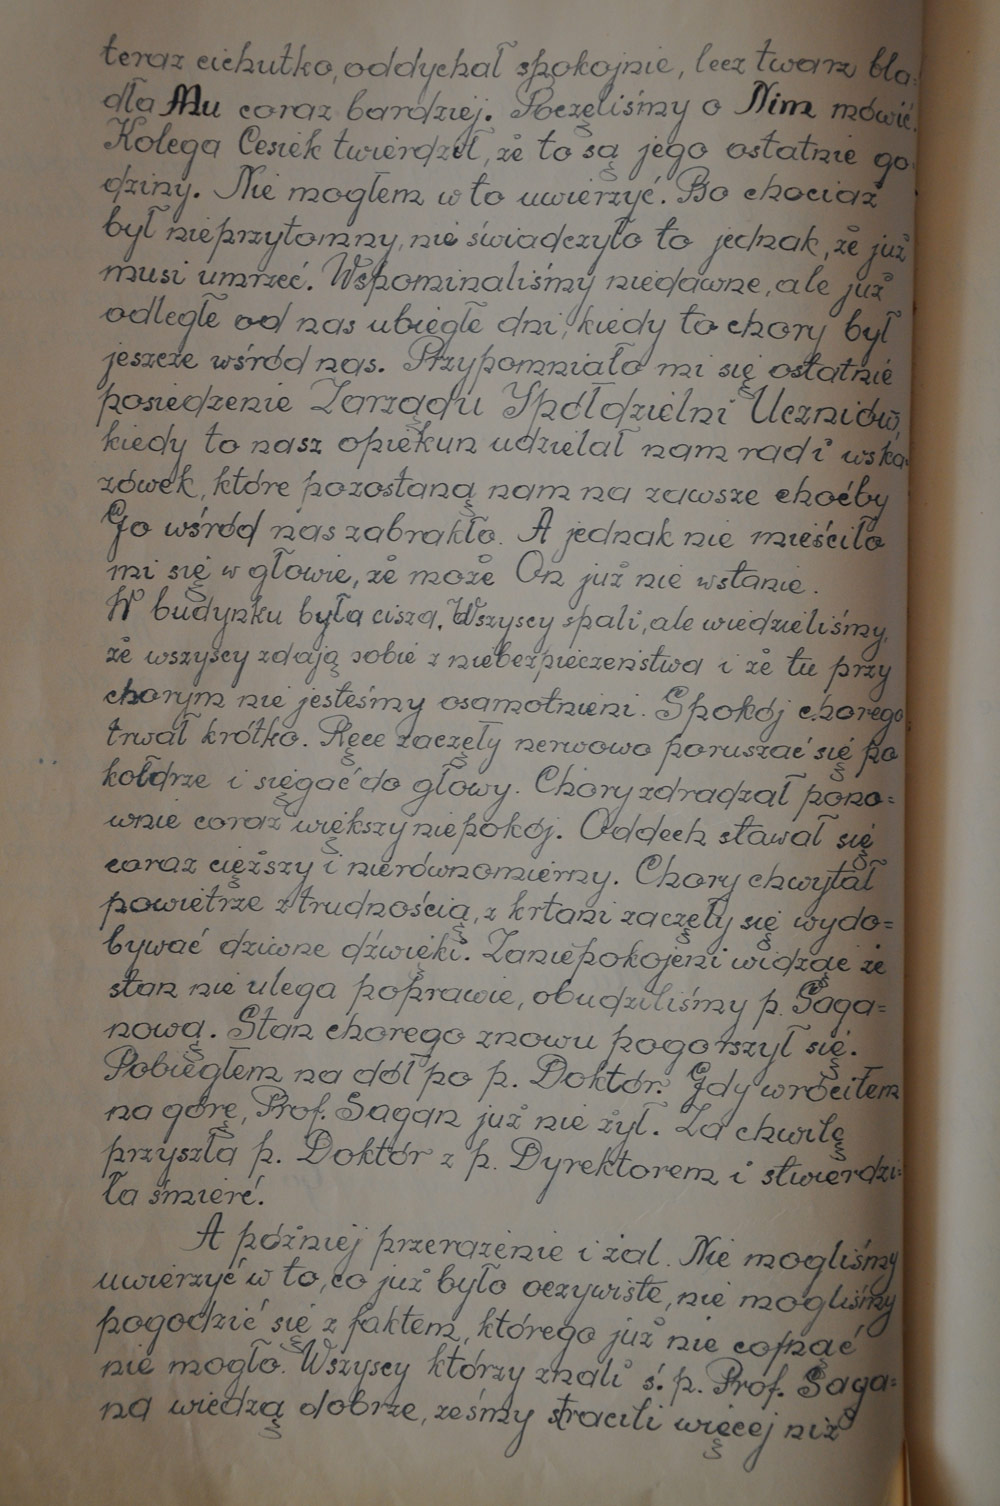 teraz cichutko, oddychał spokojnie, lecz twarz bla=
dła Mu coraz bardziej. Poczęliśmy o Nim mówić.
Kolega Cesiek twierdził, że to są jego ostatnie go=
dziny. Nie mogłem w to uwierzyć. Bo chociaż
był nieprzytomny, nie świadczyło to jednak, że już
musi umrzeć. Wspominaliśmy niedawne, ale już
odległe od nas ubiegłe dni, kiedy to chory był
jeszcze wśród nas. Przypomniało mi się ostatnie
posiedzenie Zarządu Spółdzielni Uczniów,
kiedy to nasz opiekun udzielał nam rad i wska=
zówek, które pozostaną nam na zawsze choćby
Go wśród nas zabrakło. A jednak nie mieściło
mi się w głowie, że może On już nie wstanie.
W budynku była cisza. Wszyscy spali, ale wiedzieliśmy,
że wszyscy zdają sobie z niebezpieczeństwa i że tu przy
chorym nie jesteśmy osamotnieni. Spokój chorego
trwał krótko. Ręce zaczęły nerwowo poruszać się po
kołdrze i sięgać do głowy. Chory zdradzał pono=
wnie coraz większy niepokój. Oddech stawał się
coraz cięższy i nierównomierny. Chory chwytał
powietrze z trudnością, z krtani zaczęły się wydo=
bywać dziwne dźwięki. Zaniepokojeni widząc że
stan nie ulega poprawie, obudziliśmy p. Saga=
nową. Stan chorego znowu pogorszył się.
Pobiegłem na dół po p. Doktór. Gdy wróciłem
na górę, Prof. Sagan już nie żył. Za chwilę
przyszła p. Doktór z p. Dyrektorem i stwierdzi=
ła śmierć.
A później przerażenie i żal. Nie mogliśmy
uwierzyć w to, co już było oczywiste, nie mogliśmy
pogodzić się z faktem, którego już nie cofnąć
nie mogło. Wszyscy którzy znali ś. p. Prof. Saga=
na wiedzą dobrze, żeśmy stracili więcej niż